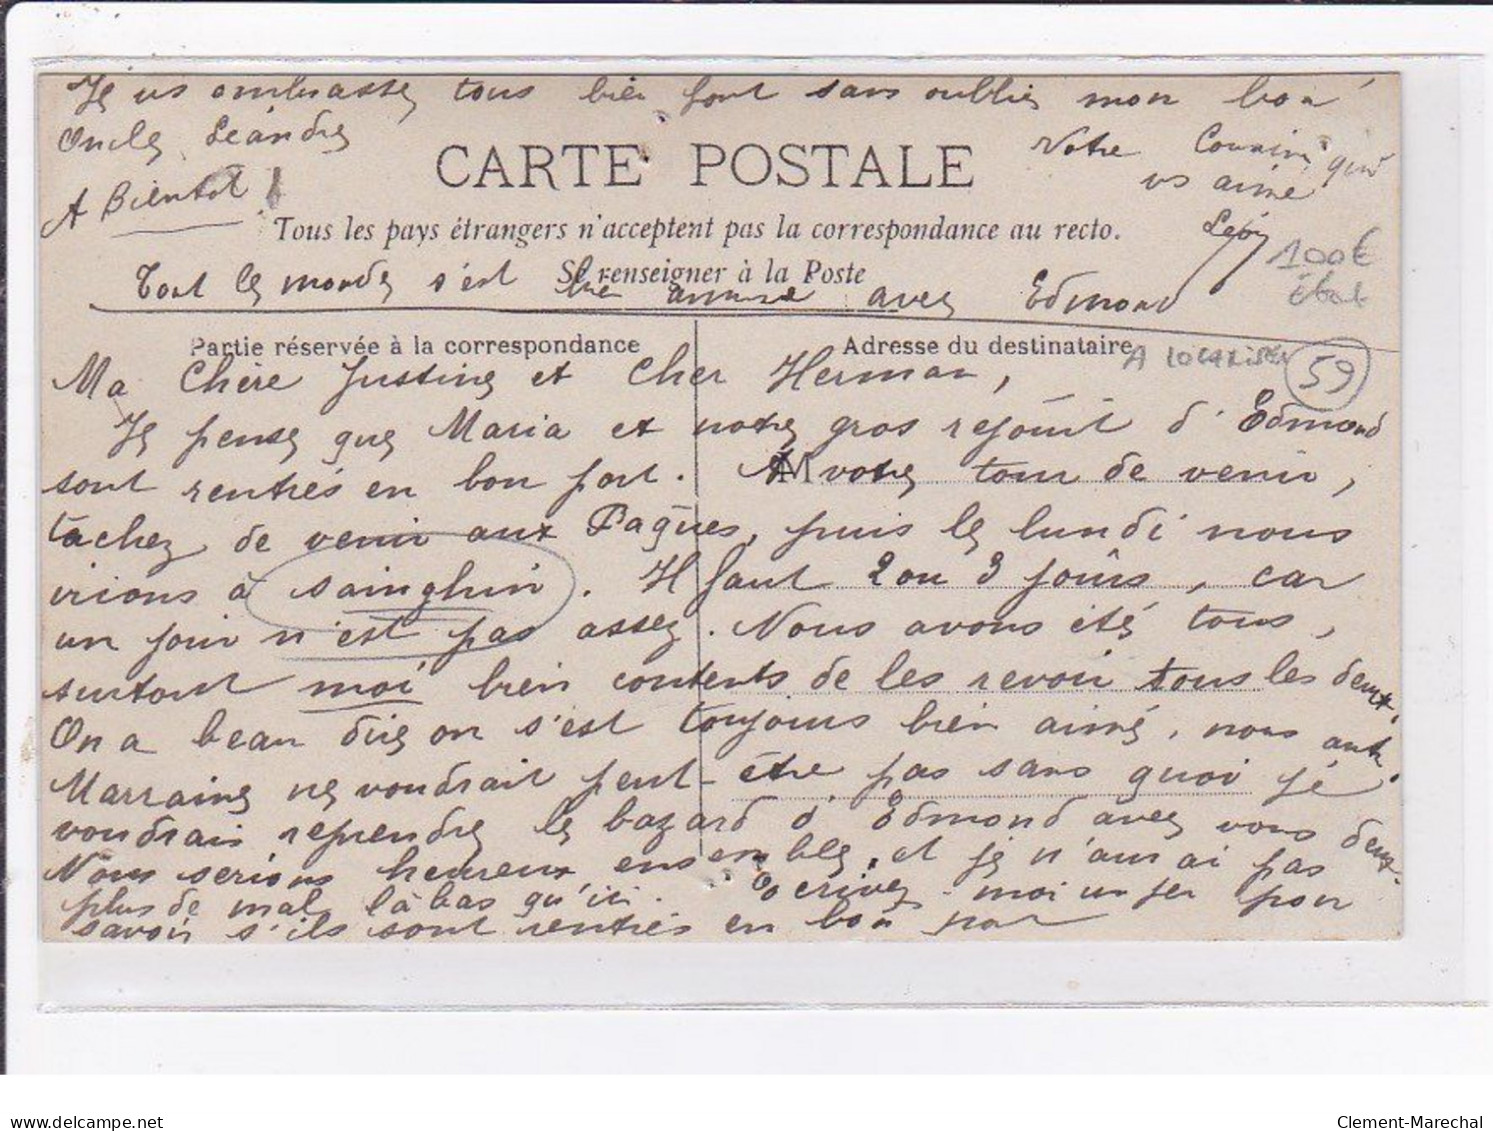 Je vs embrasse tous bien fort sans oublier mon bon
Oncle Léandre
A Bientot !
CARTE POSTALE
Votre Cousine qui
vs aime
Tous les pays étrangers n'acceptent pas la correspondance au recto.
Se renseigner à la Poste
100€
A LOCALISER
59
Tout le monde s'est bien amusé avec Edmond
Partie réservée à la correspondance
Adresse du destinataire
Ma Chère Justine et Cher Herman,
Je pense que Maria et notre gros rejouit d'Edmond
sont rentrés en bon port. A M votre tour de venir,
tachez de venir aux Paques, puis le lundi nous
irions à sainghin. Il faut 2 ou 3 jours, car
un jour n'est pas assez. Nous avons été tous,
surtout moi bien contents de les revoir tous les deux.
On a beau dire on s'est toujours bien aimé, nous aut.
Marraine ne voudrait peut-être pas sans quoi je
voudrais reprendre le bazard d'Edmond avec vous deux.
Nous serions heureux ensemble, et je n'aurai pas
plus de mal là bas qu'ici. Ecrivez-moi un peu pour
savoir s'ils sont rentrés en bon port
Clement-Marechal
www.delcampe.net